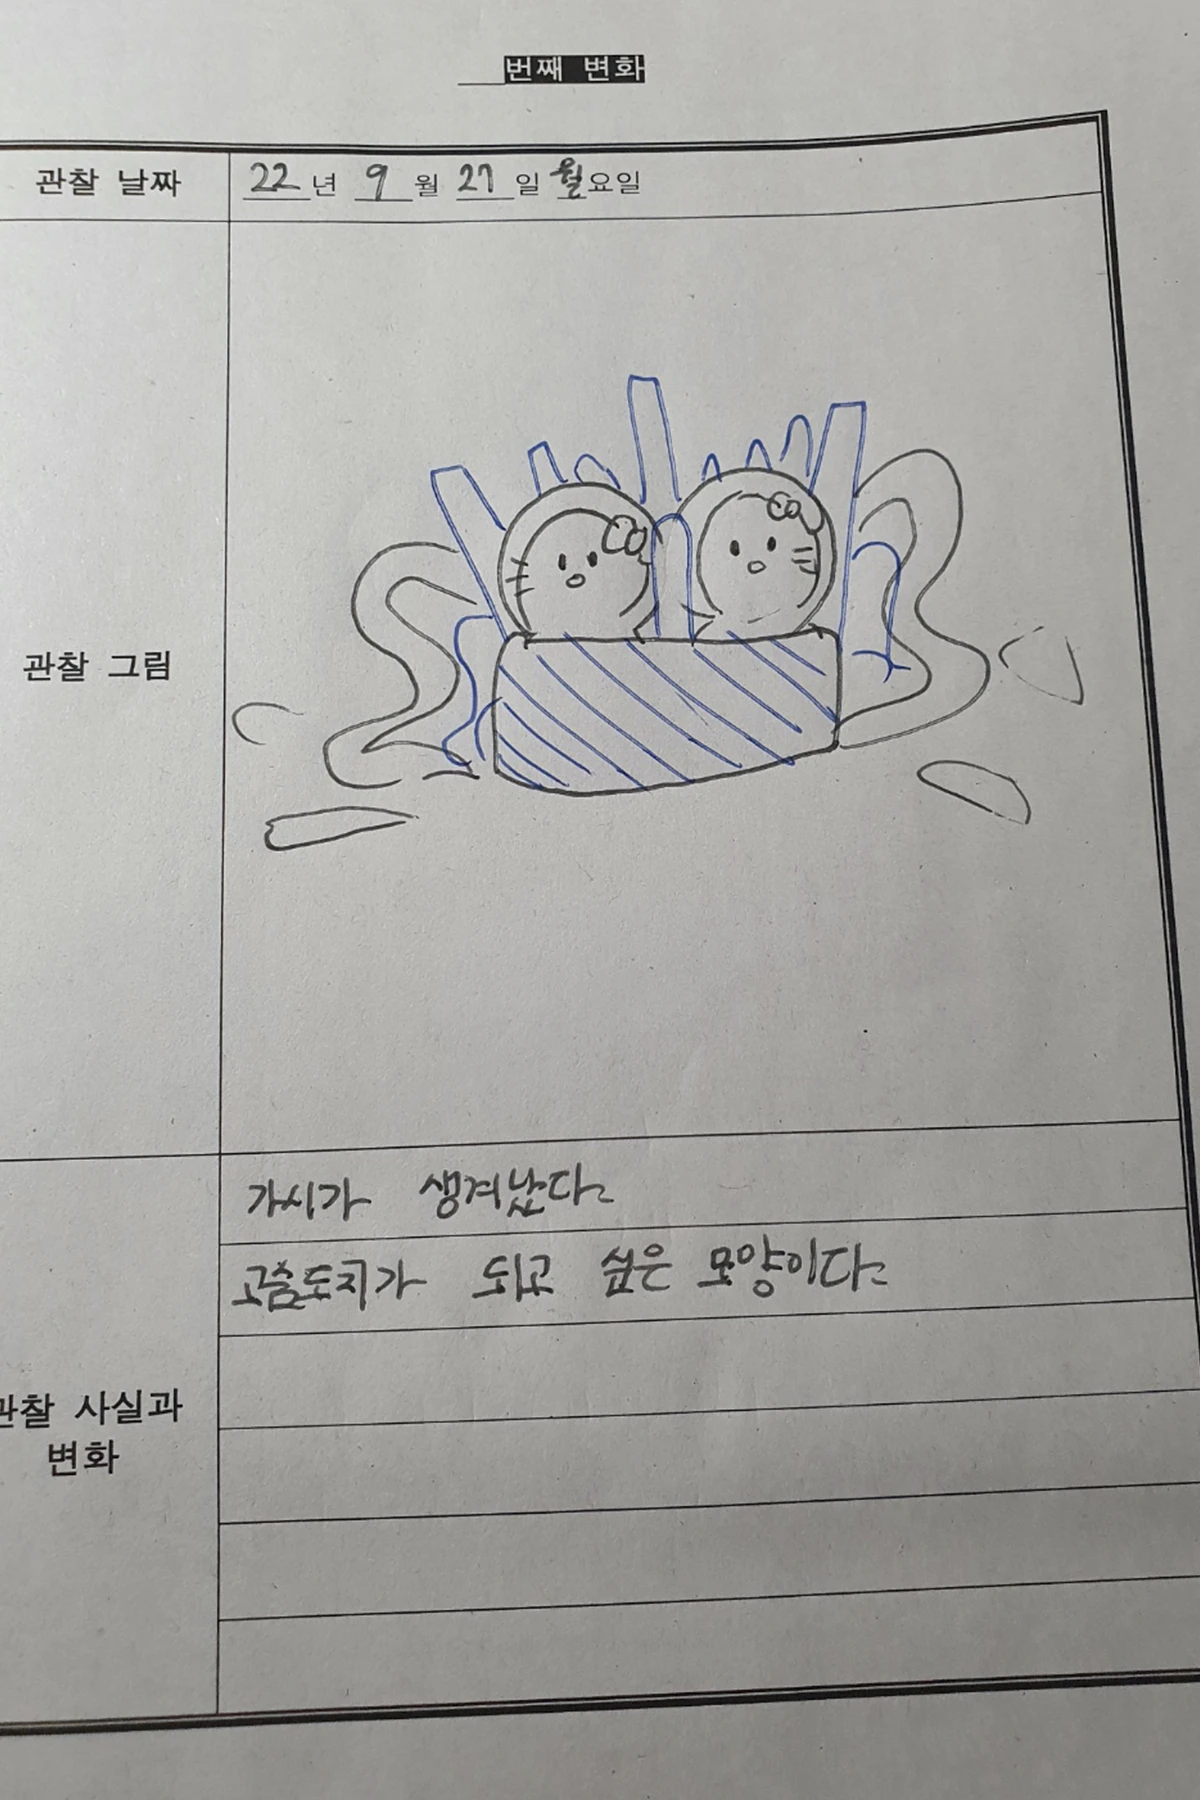 ___번째 변화
관찰 날짜
22년 9월 27일 월요일
관찰 그림
관찰 사실과
변화
가시가 생겨났다.
고슴도치가 되고 싶은 모양이다.